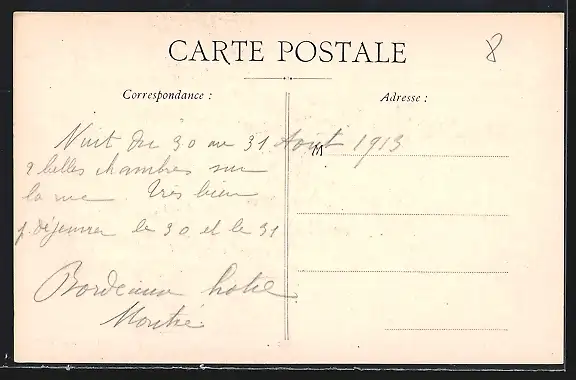 CARTE POSTALE
8
Correspondance :
Adresse :
Nuit du 30 au 31 Août 1913
2 belles chambres sur
la rue. Très bien
p. déjeuner le 30 et le 31
M
Bordeaux hotel